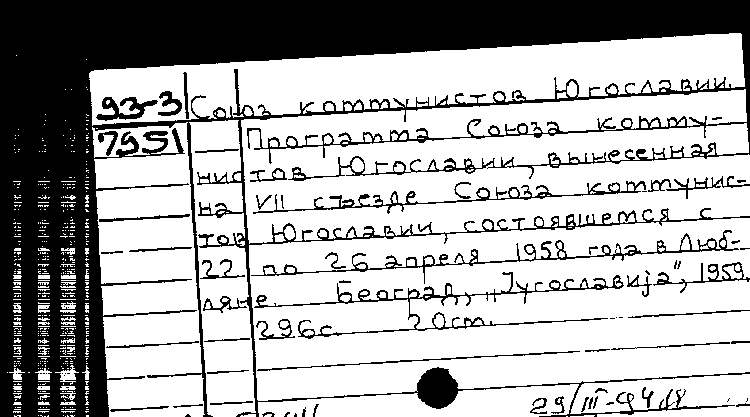 93-3 Союз коммунистов Югославии.
7951 Программа Союза комму-
нистов Югославии, вынесенная
на VII съезде Союза коммунис-
тов Югославии, состоявшемся с
22 по 26 апреля 1958 года в Люб-
ляне. Београд, „Југославија", 1959.
296с. 20см.
29/III-